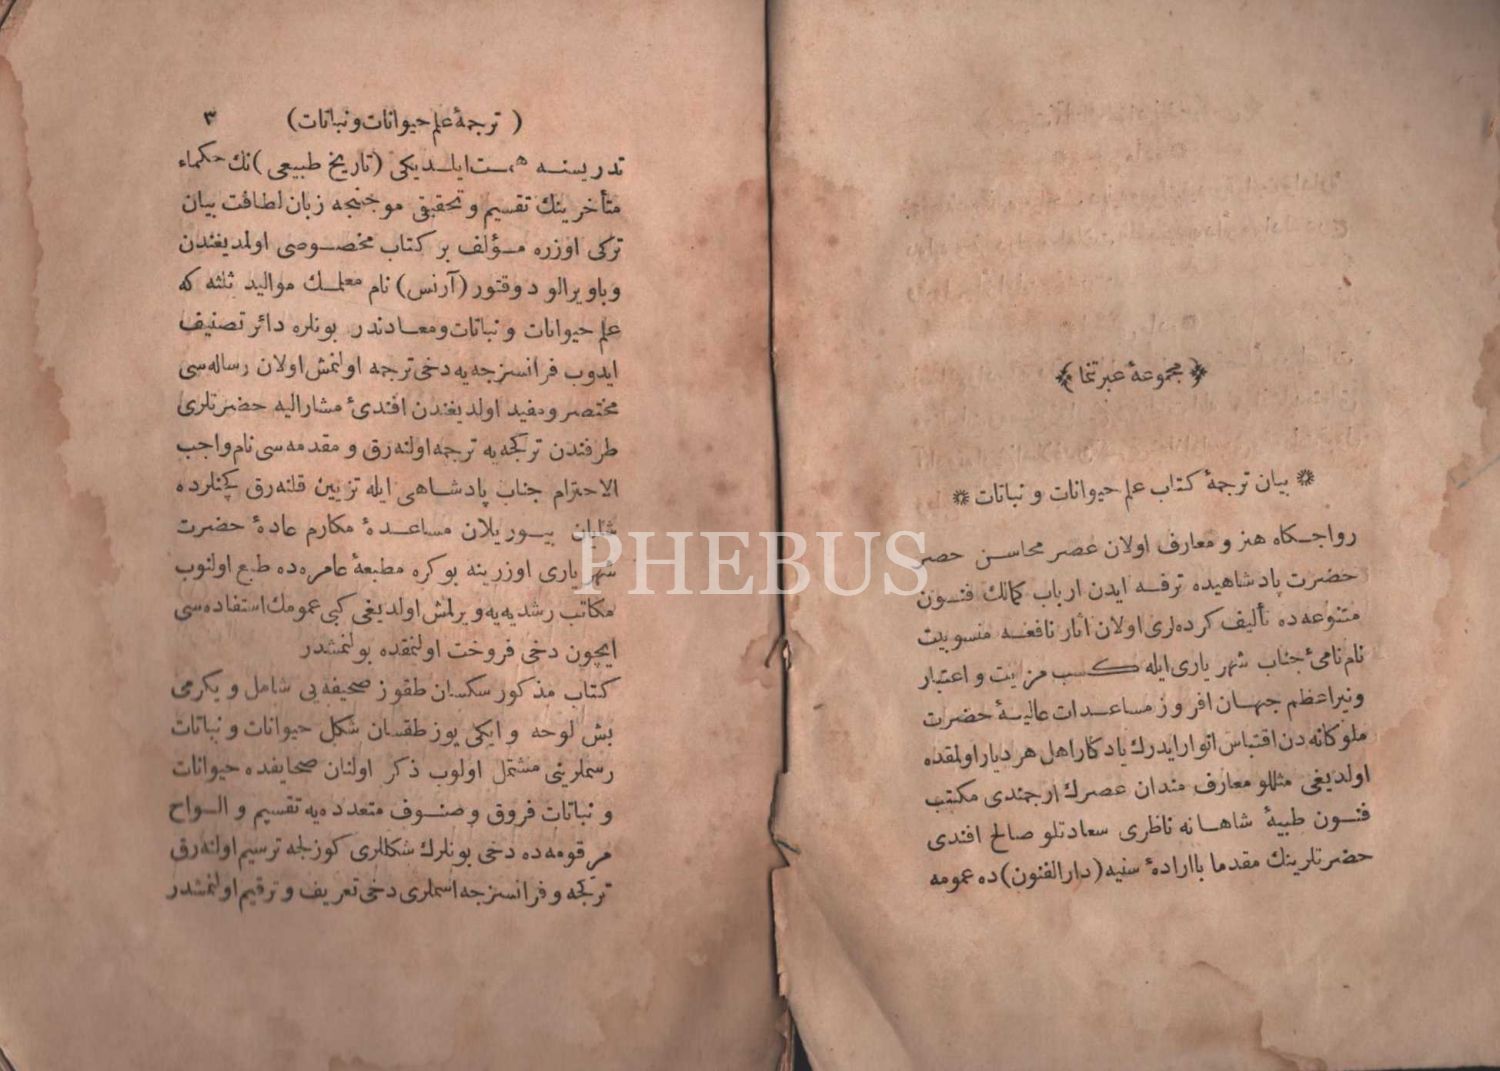 ﴿ مجموعهٔ عبرتنما ﴾
❋ بیان ترجمهٔ کتاب علم حیوانات و نباتات ❋
رواجکاه هنر و معارف اولان عصر محاسن حصر
حضرت پادشاهیده ترفه ایدن ارباب کمالك فنون
متنوعه ده تألیف کرده لری اولان اثار نافعه منسوبیت
نام نامیٔ جناب شهریاری ایله کسب مزیت و اعتبار
ونیراعظم جهان افروز مساعدات عالیهٔ حضرت
ملوکانه دن اقتباس انوار ایدرك یادکار اهل هر دیار اولمقده
اولدیغی مثللو معارف مندان عصرك ارجمندی مکتب
فنون طبیهٔ شاهانه ناظری سعادتلو صالح افندی
حضرتلرینك مقدما بااراده ٔ سنیه (دارالفنون) ده عمومه
( ترجمهٔ علم حیوانات و نباتات ) ٣
تدریسنه همت ایلدیکی (تاریخ طبیعی) نك حکماء
متأخرینك تقسیم و تحقیقی موجبنجه زبان لطافت بیان
ترکی اوزره مؤلف بر کتاب مخصوصی اولمدیغندن
وباویرالو دوقتور (آرنس) نام معلمك موالید ثلثه که
علم حیوانات و نباتات ومعادندر بونلره دائر تصنیف
ایدوب فرانسزجه یه دخی ترجمه اولنمش اولان رساله سی
مختصر ومفید اولدیغندن افندیٔ مشارالیه حضرتلری
طرفندن ترکجه یه ترجمه اولنه رق و مقدمه سی نام واجب
الاحترام جناب پادشاهی ایله تزیین قلنه رق کچنلرده
شایان بیوریلان مساعدهٔ مکارم عادهٔ حضرت
شهریاری اوزرینه بوکره مطبعهٔ عامره ده طبع اولنوب
مکاتب رشدیه یه ویرلمش اولدیغی کبی عمومك استفاده سی
ایچون دخی فروخت اولنمقده بولنمشدر
کتاب مذکور سکسان طقوز صحیفه یی شامل و یکرمی
بش لوحه و ایکی یوز طقسان شکل حیوانات و نباتات
رسملرینی مشتمل اولوب ذکر اولنان صحایفده حیوانات
و نباتات فروق و صنوف متعدده یه تقسیم و الواح
مرقومه ده دخی بونلرك شکللری کوزلجه ترسیم اولنه رق
ترکجه و فرانسزجه اسملری دخی تعریف و ترقیم اولنمشدر
PHEBUS